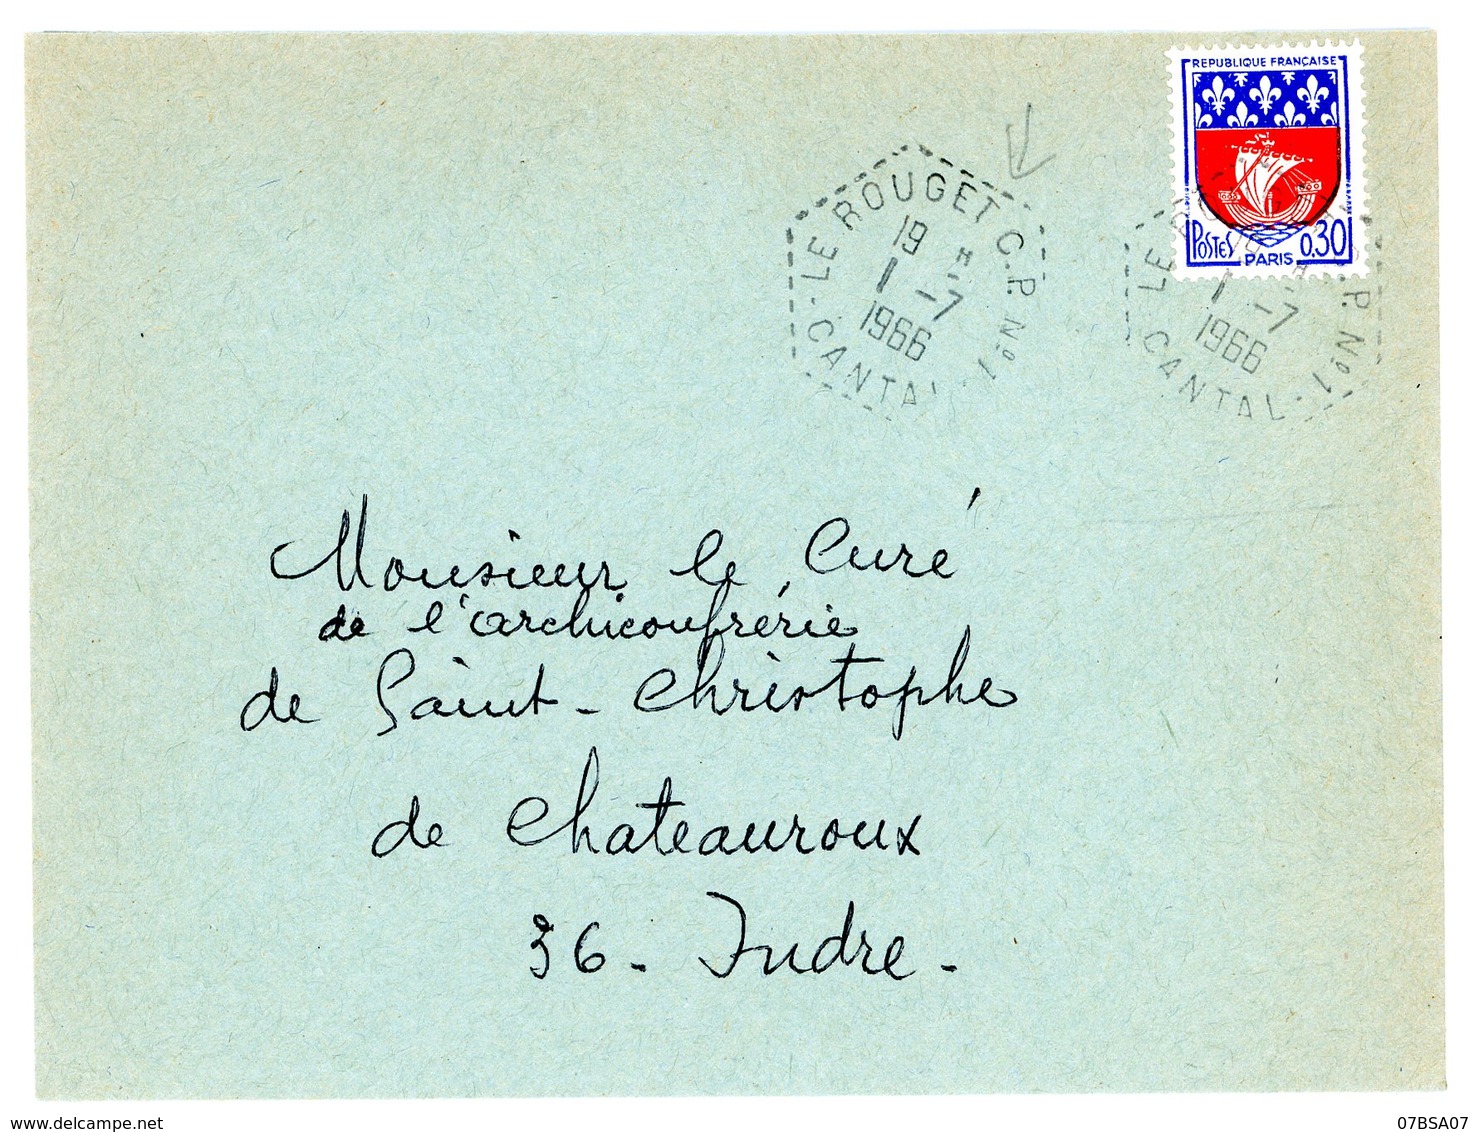 REPUBLIQUE FRANÇAISE
POSTES PARIS 0,30
LE ROUGET C.P. Nº1
19 H
1 -7
1966
CANTAL
LE ROUGET C.P. Nº1
19 H
1 -7
1966
CANTAL
Monsieur le Curé
de l'archiconfrérie
de Saint-Christophe
de Chateauroux
36 - Indre -
07BSA07